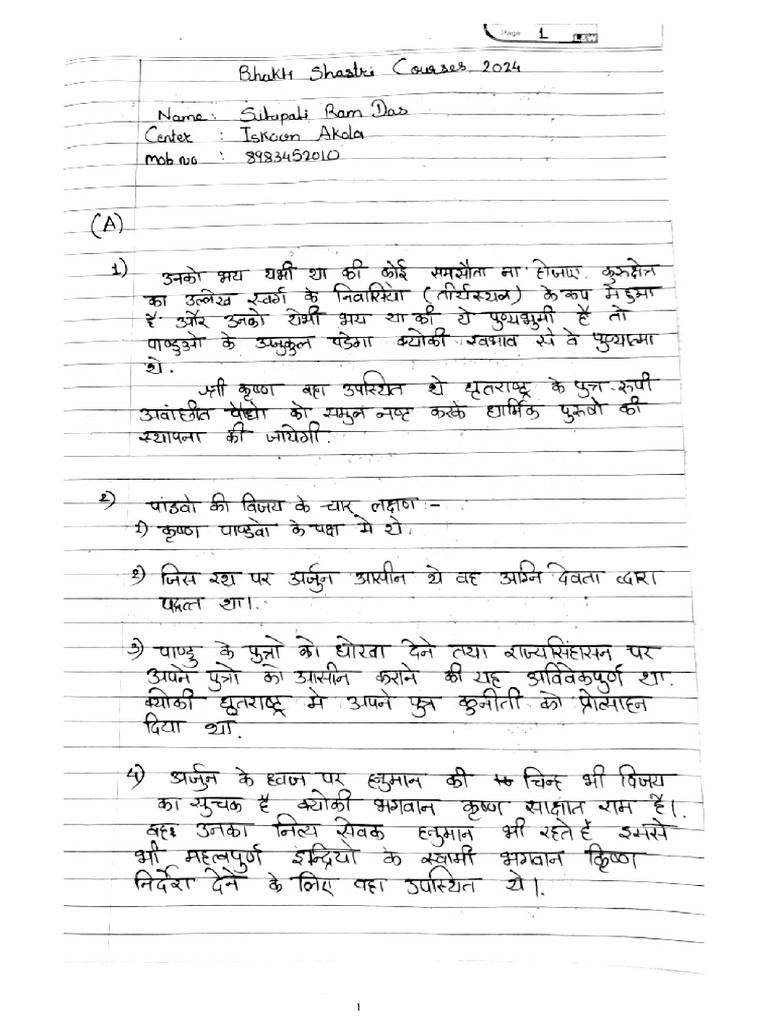 Page 1 L&W
Bhakti Shastri Courses 2024
Name: Sitapati Ram Das
Center : Iskcon Akola
Mob no : 8983452010
(A)
1) उनको भय यभी था की कोई समसौता ना होजाए. कुरुक्षेत्र
का उल्लेख स्वर्ग के निवासियो (तीर्थस्थल) के रूप मे हुआ
है और उनको येभी भय था की ये पुण्यभुमी है तो
पाण्डुओ के अनुकुल पडेगा क्योकी स्वभाव से वे पुण्यात्मा
थे.
श्री कृष्ण वहा उपस्थित थे धृतराष्ट्र के पुत्र रुपी
अवांछीत पौधो को समुल नष्ट करके धार्मिक पुरुषो की
स्थापना की जायेगी.
2) पांडवो की विजय के चार लक्षण :-
1) कृष्ण पाण्डवो के पक्ष मे थे.
2) जिस रथ पर अर्जुन आसीन थे वह अग्नि देवता द्वारा
प्रदत्त था।.
3) पाण्डु के पुत्रो को धोखा देने तथा राज्यसिंहासन पर
अपने पुत्रो को आसीन कराने की यह अविवेकपुर्ण था.
क्योकी धृतराष्ट्र मे अपने पुत्र कुनीती को प्रोत्साहन
दिया था.
4) अर्जुन के ध्वज पर हनुमान की चिन्ह भी विजय
का सुचक है क्योकी भगवान कृष्ण साक्षात राम है।.
वहा उनका नित्य सेवक हनुमान भी रहते हैं इससे
भी महत्वपुर्ण इन्द्रियो के स्वामी भगवान क्रिष्ण
निर्देश देने के लिए वहा उपस्थित थे।.
1